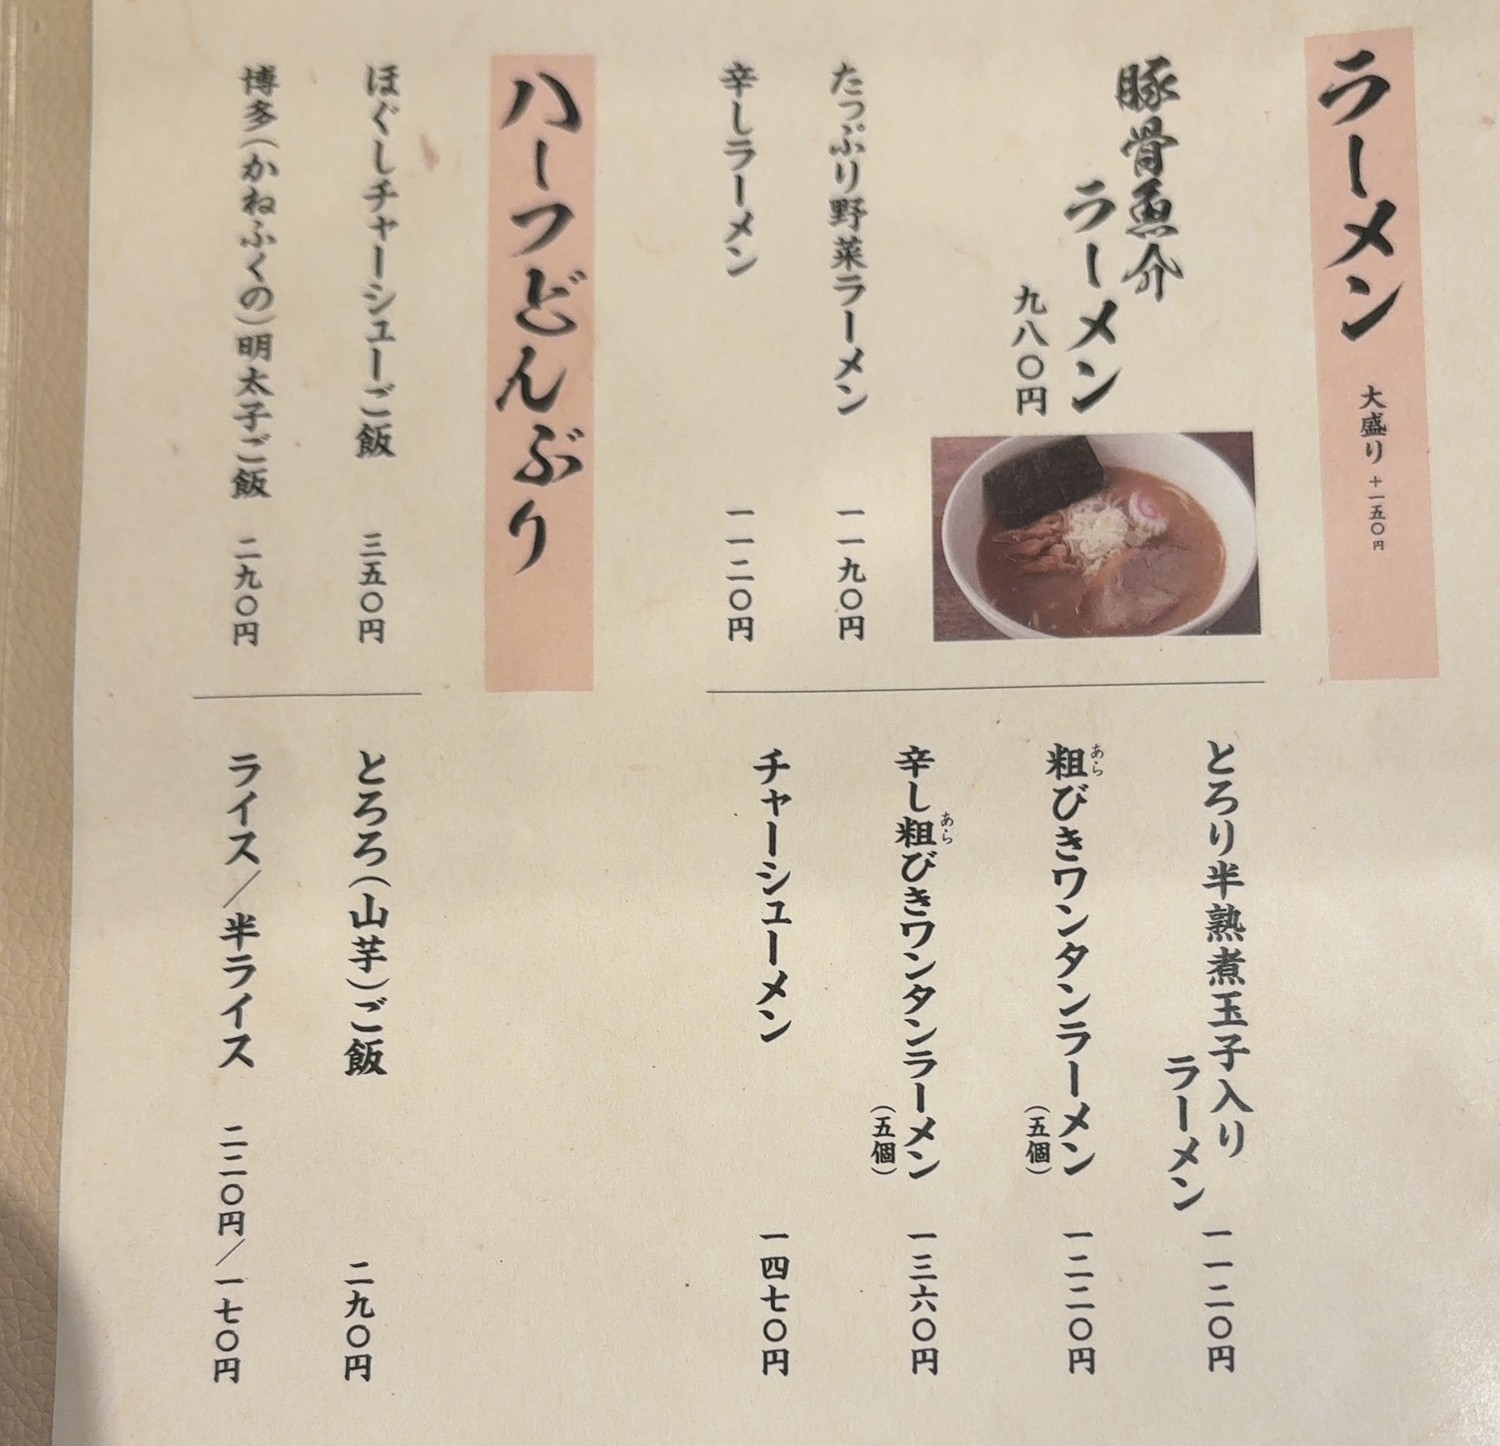 ラーメン
大盛り +一五〇円
豚骨魚介
ラーメン
九八〇円
たっぷり野菜ラーメン 一一九〇円
辛しラーメン 一一二〇円
とろり半熟煮玉子入り
ラーメン 一一二〇円
粗びきワンタンラーメン
あら
(五個)
一二二〇円
辛し粗びきワンタンラーメン
あら
(五個)
一三六〇円
チャーシューメン 一四七〇円
ハーフどんぶり
ほぐしチャーシューご飯 三五〇円
博多(かねふくの)明太子ご飯 二九〇円
とろろ(山芋)ご飯 二九〇円
ライス/半ライス 二二〇円/一七〇円